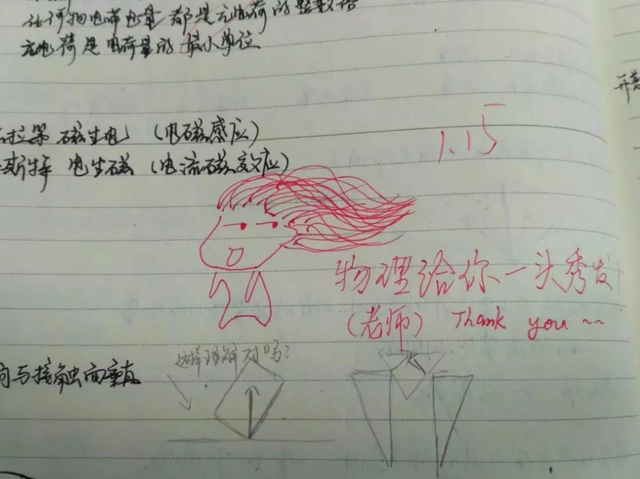 任何物电带电量都是元电荷的整数倍
元电荷是电荷量的最小单位
拉第 磁生电 (电磁感应)
斯特 电生磁 (电流磁效应)
1.15
物理给你一头秀发
(老师) Thank you ~~
这样理解对吗?
向与接触面垂直